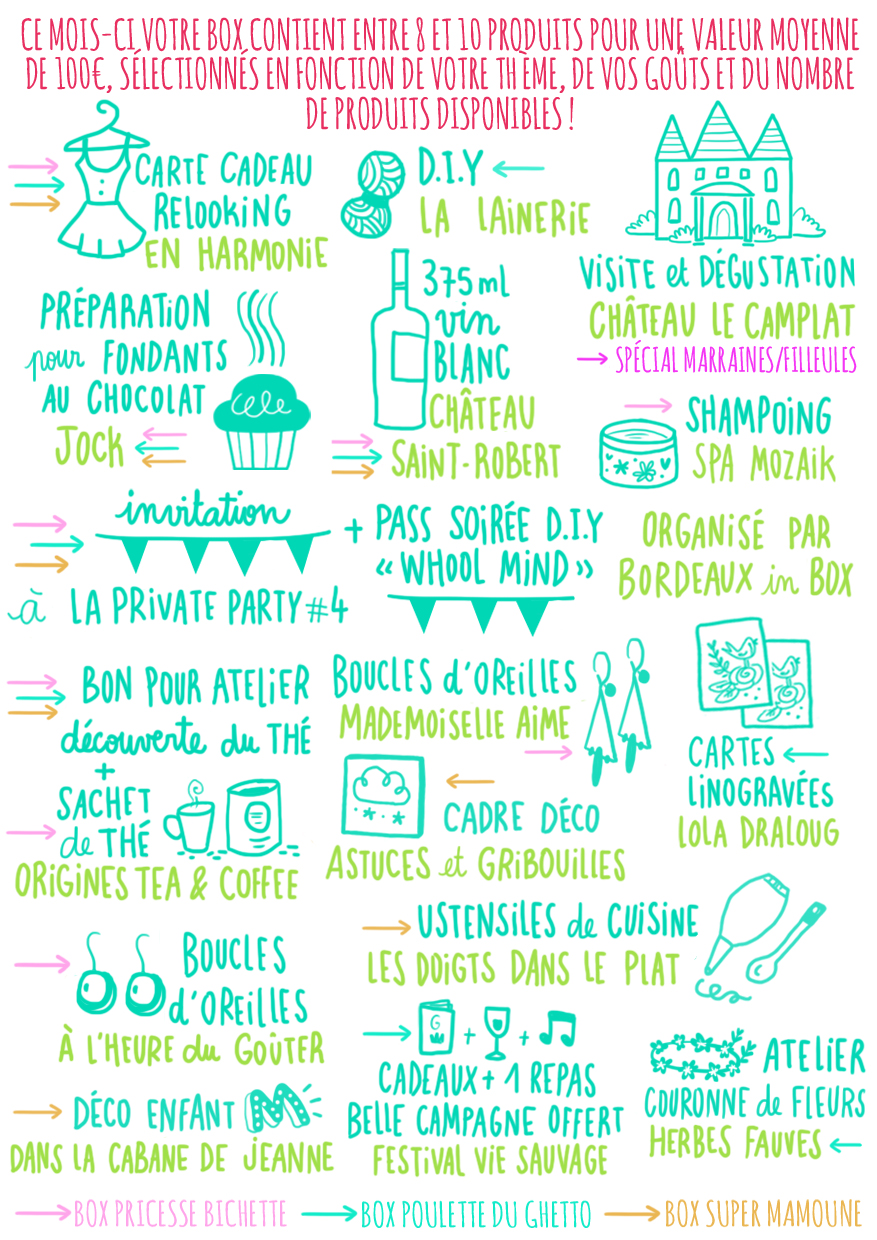 CE MOIS-CI VOTRE BOX CONTIENT ENTRE 8 ET 10 PRODUITS POUR UNE VALEUR MOYENNE
DE 100€, SÉLECTIONNÉS EN FONCTION DE VOTRE THÈME, DE VOS GOÛTS ET DU NOMBRE
DE PRODUITS DISPONIBLES !
CARTE CADEAU
RELOOKING
EN HARMONIE
D.I.Y
LA LAINERIE
VISITE et DÉGUSTATION
CHÂTEAU LE CAMPLAT
SPÉCIAL MARRAINES/FILLEULES
PRÉPARATION
pour FONDANTS
AU CHOCOLAT
JOCK
375ml
vin
BLANC
CHÂTEAU
SAINT-ROBERT
SHAMPOING
SPA MOZAIK
invitation
à LA PRIVATE PARTY #4
+ PASS SOIRÉE D.I.Y
« WHOOL MIND »
ORGANISÉ PAR
BORDEAUX in BOX
BON POUR ATELIER
découverte du THÉ
+
SACHET
de THÉ
ORIGINES TEA & COFFEE
BOUCLES d'OREILLES
MADEMOISELLE AIME
CARTES
LINOGRAVÉES
LOLA DRALOUG
CADRE DÉCO
ASTUCES et GRIBOUILLES
USTENSILES de CUISINE
LES DOIGTS DANS LE PLAT
BOUCLES
d'OREILLES
À L'HEURE du GOÛTER
G + +
CADEAUX + 1 REPAS
BELLE CAMPAGNE OFFERT
FESTIVAL VIE SAUVAGE
ATELIER
COURONNE de FLEURS
HERBES FAUVES
DÉCO ENFANT M
DANS LA CABANE DE JEANNE
BOX PRICESSE BICHETTE
BOX POULETTE DU GHETTO
BOX SUPER MAMOUNE